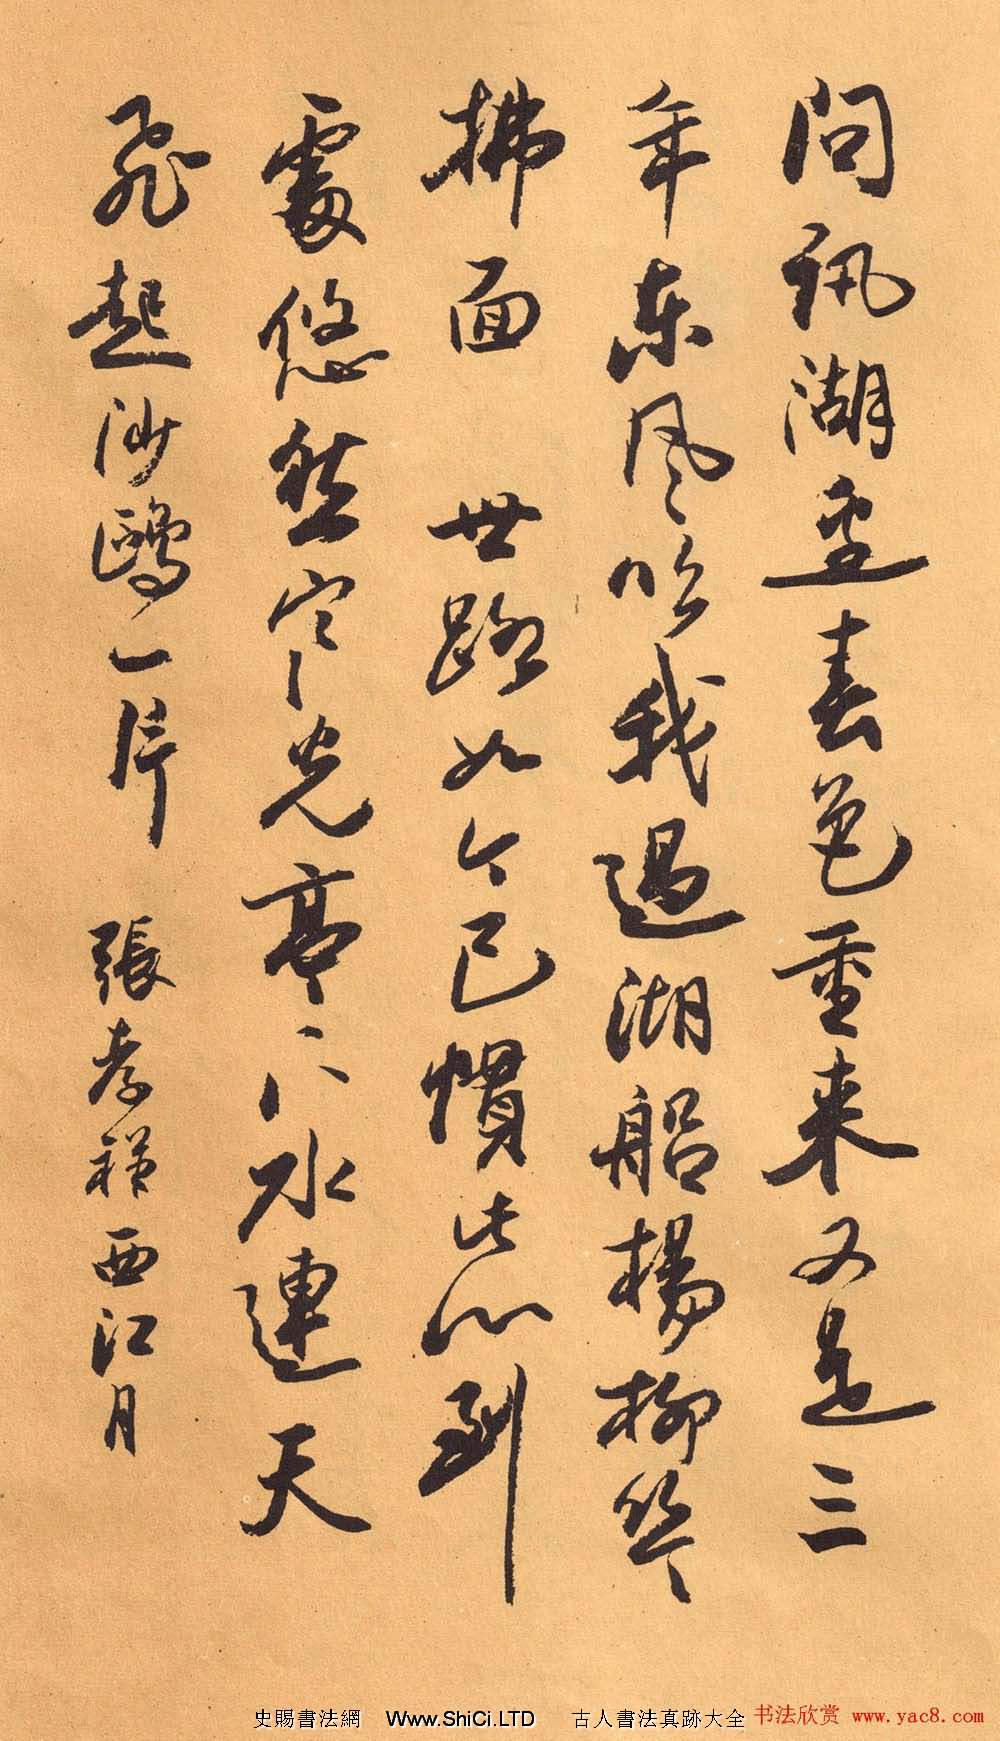 問訊湖邊春色重来又是三
年東風吹我過湖船楊柳丝丝
拂面 世路如今已慣此心到
處悠然寒光亭下水連天
飛起沙鷗一片 張孝祥西江月
史賜書法網 Www.ShiCi.LTD 古人書法真跡大全
书法欣赏 www.yac8.com